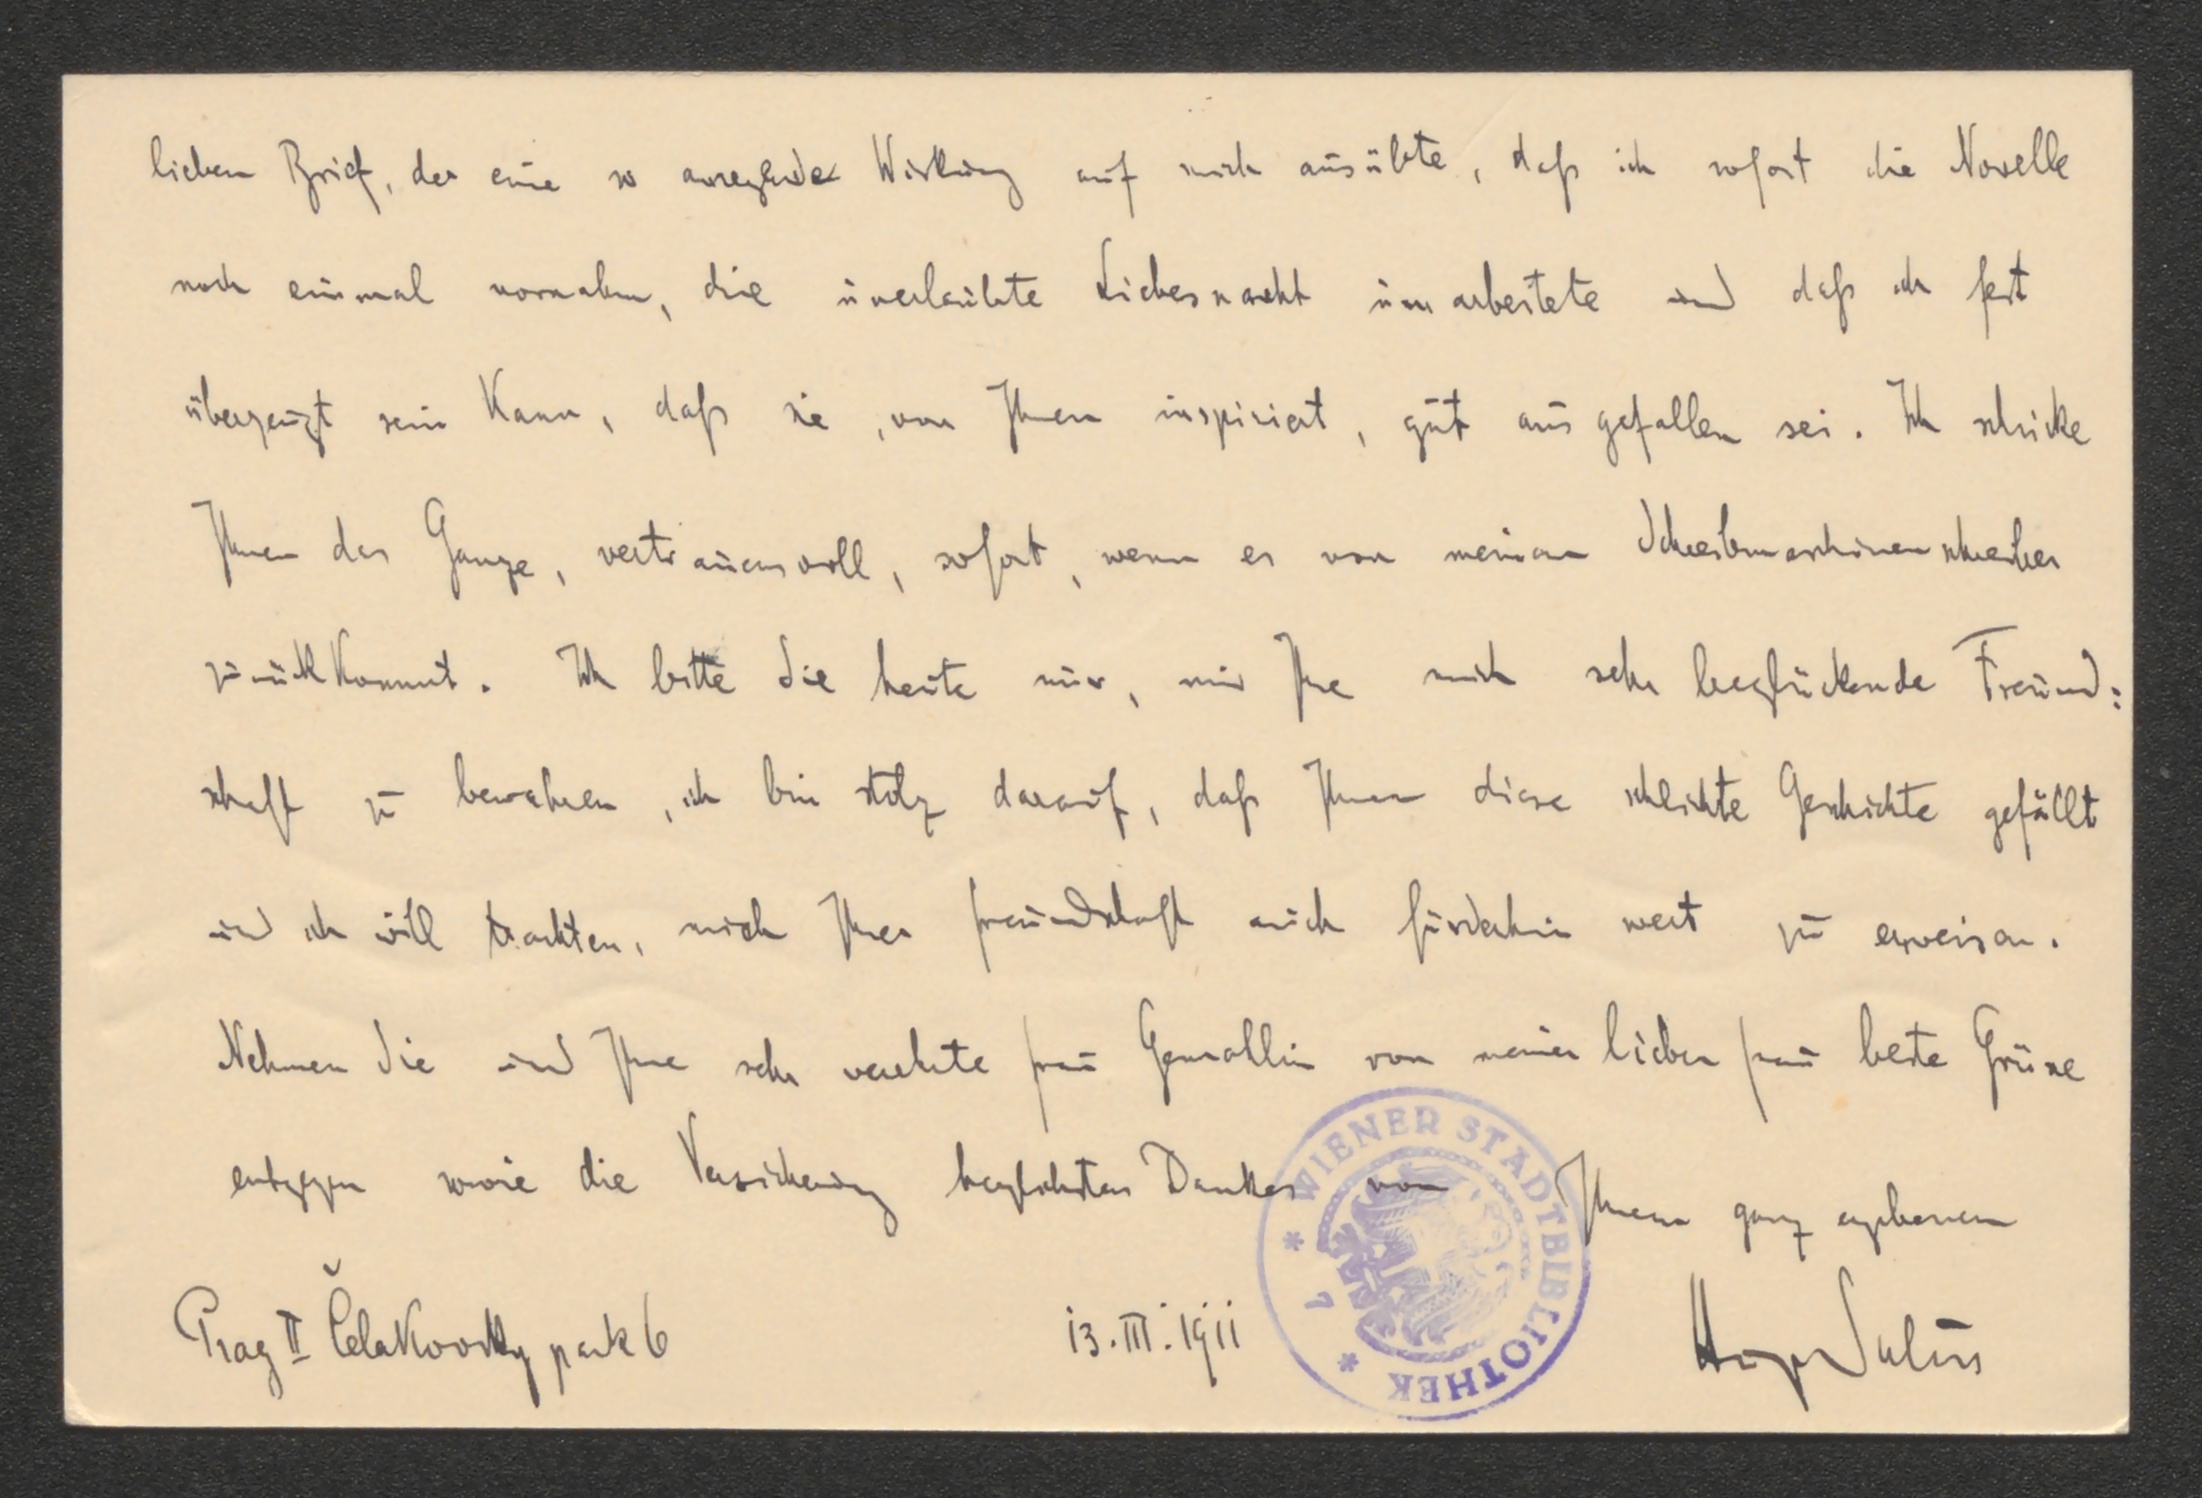 lieben Brief, der eine so anregende Wirkung auf mich ausübte, daß ich sofort die Novelle
noch einmal vornahm, die unerlaubte Liebesnacht umarbeitete und daß ich fest
überzeugt sein kann, daß sie, von Ihnen inspiriert, gut ausgefallen sei. Ich schicke
Ihnen das Ganze, vertrauensvoll, sofort, wenn es von meinem Schreibmaschinenschreiber
zurückkommt. Ich bitte Sie heute nur, mir Ihre mich sehr beglückende Freund:
schaft zu bewahren, ich bin stolz darauf, daß Ihnen diese schlichte Geschichte gefällt
und ich will trachten, mich Ihrer Freundschaft auch fürderhin wert zu erweisen.
Nehmen Sie und Ihre sehr verehrte Frau Gemahlin von meiner lieben Frau beste Grüsse
entgegen sowie die Versicherung herzlichsten Dankes von Ihrem ganz ergebenen
Prag II Čelakovskypark 6 13. III. 1911 Hugo Salus
* WIENER STADTBIBLIOTHEK * 7